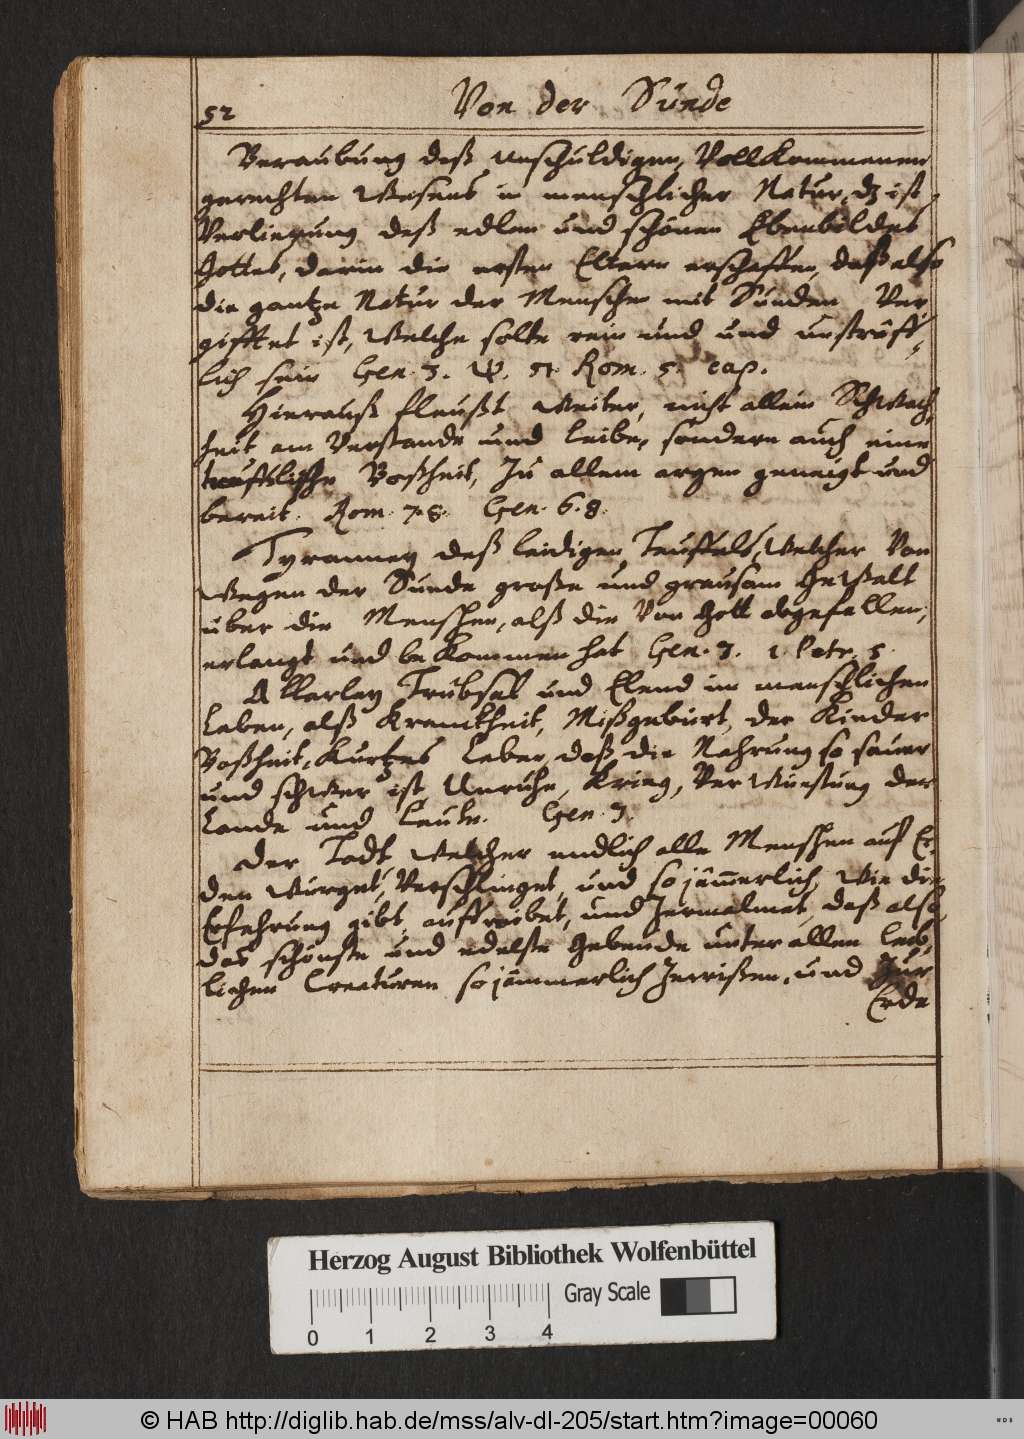 52
Von der Sünde
Beraubung deß unschuldigen, Vollkommenen
gerechten Wesens in menschlicher Natur, dz ist
Verlierung deß edlen und schönen Ebenbildes
Gottes, darin die ersten Eltern erschaffen, daß also
die gantze Natur der Menschen mit Sünden Ver-
gifftet ist, welche solte rein und und unsträff-
lich sein Gen. 3. Ψ. 51. Rom. 5. cap.
Hierauß fleußt weiter, nicht allein Schwach-
heit am Verstande und Leibe, sondern auch eine
teufflische Boßheit, zu allem argen geneigt und
bereit. Rom. 7.8. Gen. 6.8.
Tyranney deß leidigen Teuffels, welcher Von
wegen der Sünde große und grausam Gewalt
über die Menschen, alß die Von Gott abgefallen,
erlangt und bekommen hat Gen. 3. 1. Petr. 5.
Allerley Trübsal und Elend im menschlichen
Leben, alß Kranckheit, Mißgeburt, der Kinder
Boßheit, Kurtzes Leben, daß die Nahrung so sauer
und schwer ist, Unruhe, Krieg, Verwüstung der
Lande und Leute. Gen. 3.
Der Todt, welcher endlich alle Menschen auf Er-
den würget, Verschlinget, und so jämerlich, wie die
Erfahrung gibt, auffreibet, und zermalmet, daß also
das schönste und edelste Gebeude unter allen leib-
lichen Creaturen so jämmerlich zerrißen, und zur
Erde
Herzog August Bibliothek Wolfenbüttel
Gray Scale
0 1 2 3 4
© HAB http://diglib.hab.de/mss/alv-dl-205/start.htm?image=00060